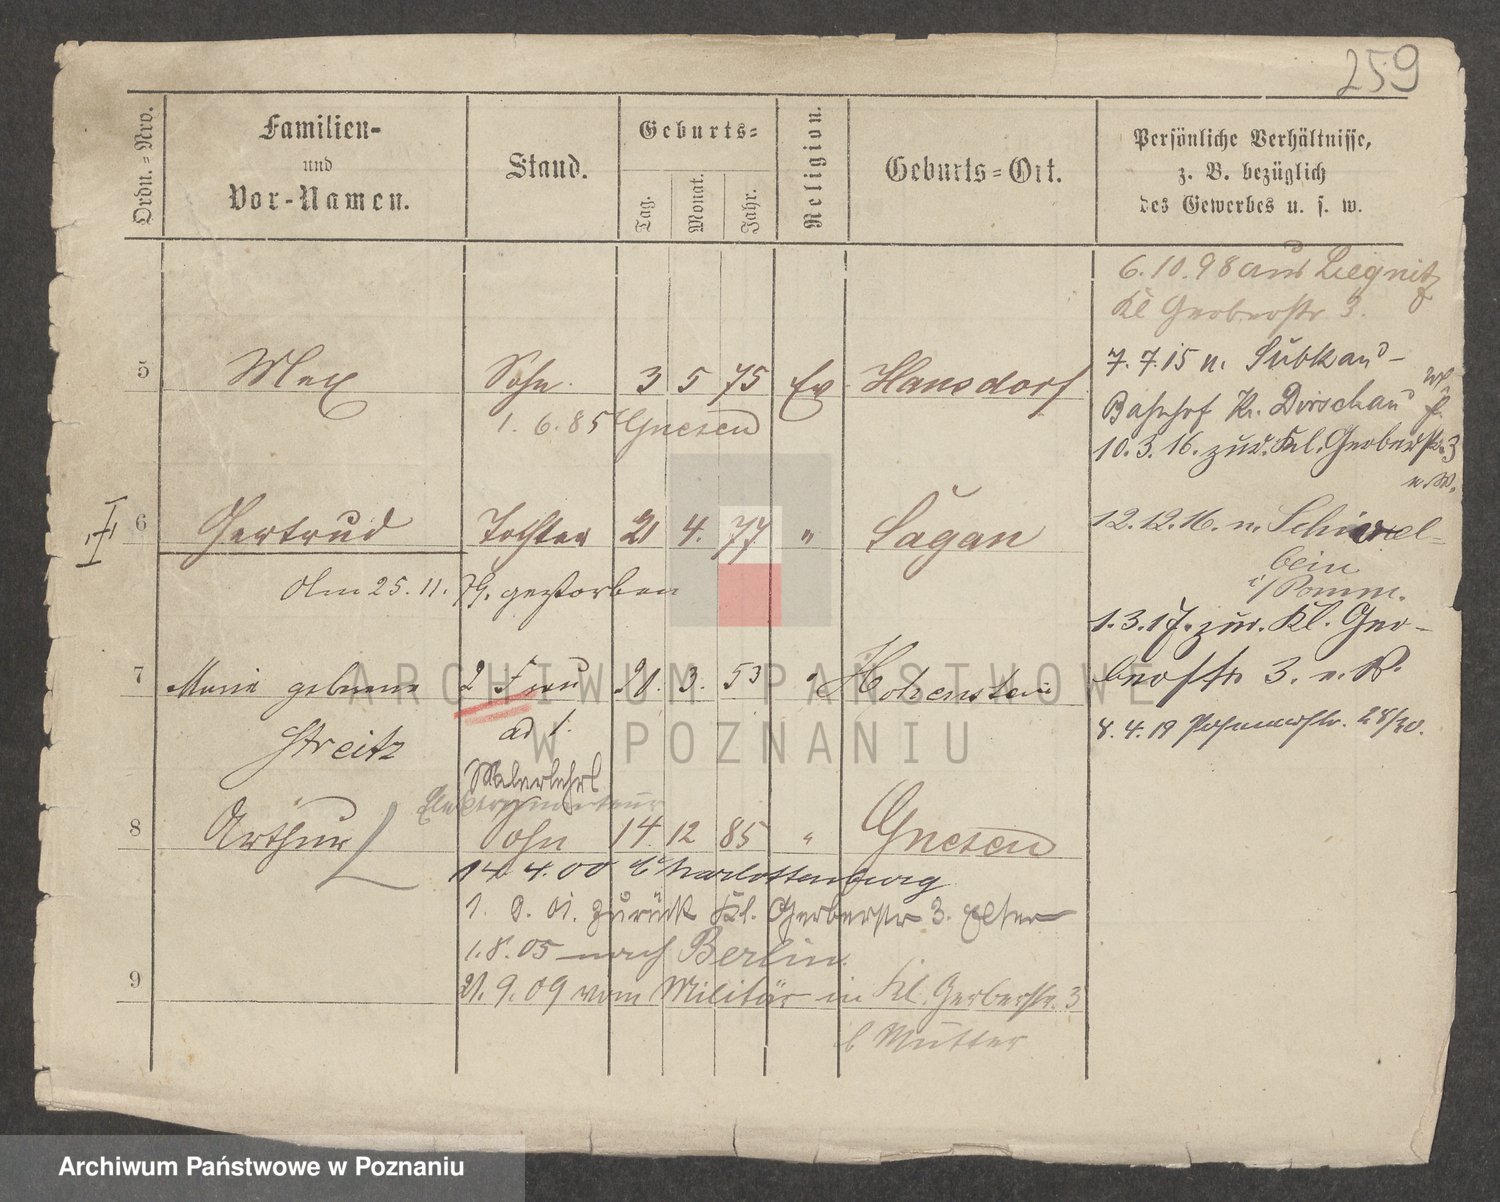 259
Ordn.=Nro.
Familien-
und
Vor-Namen.
Stand.
Geburts=
Tag.
Monat.
Jahr.
Religion.
Geburts=Ort.
Persönliche Verhältnisse,
z. B. bezüglich
des Gewerbes u. s. w.
6.10.98 aus Liegnitz
Kl Gerberstr 3.
5 Max Sohn. 3 5 75 Ev Hansdorf
1. 6. 85 Gnesen
7. 7. 15 n. Subkau-
Bahnhof Kr. Dirschau
10. 3. 16. zur. Kl. Gerberstr. 3
6 Gertrud Tochter 21 4. 77 " Sagan
Am 25. 11. 79. gestorben
12.12.16. n. Schivel-
bein
i/Pomm.
1. 3. 17. zur. Kl. Ger-
berstr 3.
8. 4. 19 Posenerstr. 28/30.
7 Marie geborene 2 Frau 21. 3. 53 " Hohenstein
Streitz ad 1.
Malerlehrl
Elektromonteur
8 Arthur Sohn 14. 12 85 " Gnesen
14. 4. 00 Charlottenburg
1. 9. 01. zurück Kl. Gerberstr 3. Elter
1. 8. 05 nach Berlin.
21. 9. 09 vom Militär in Kl. Gerberstr. 3
b Mutter
9
ARCHIWUM PAŃSTWOWE
W POZNANIU
Archiwum Państwowe w Poznaniu